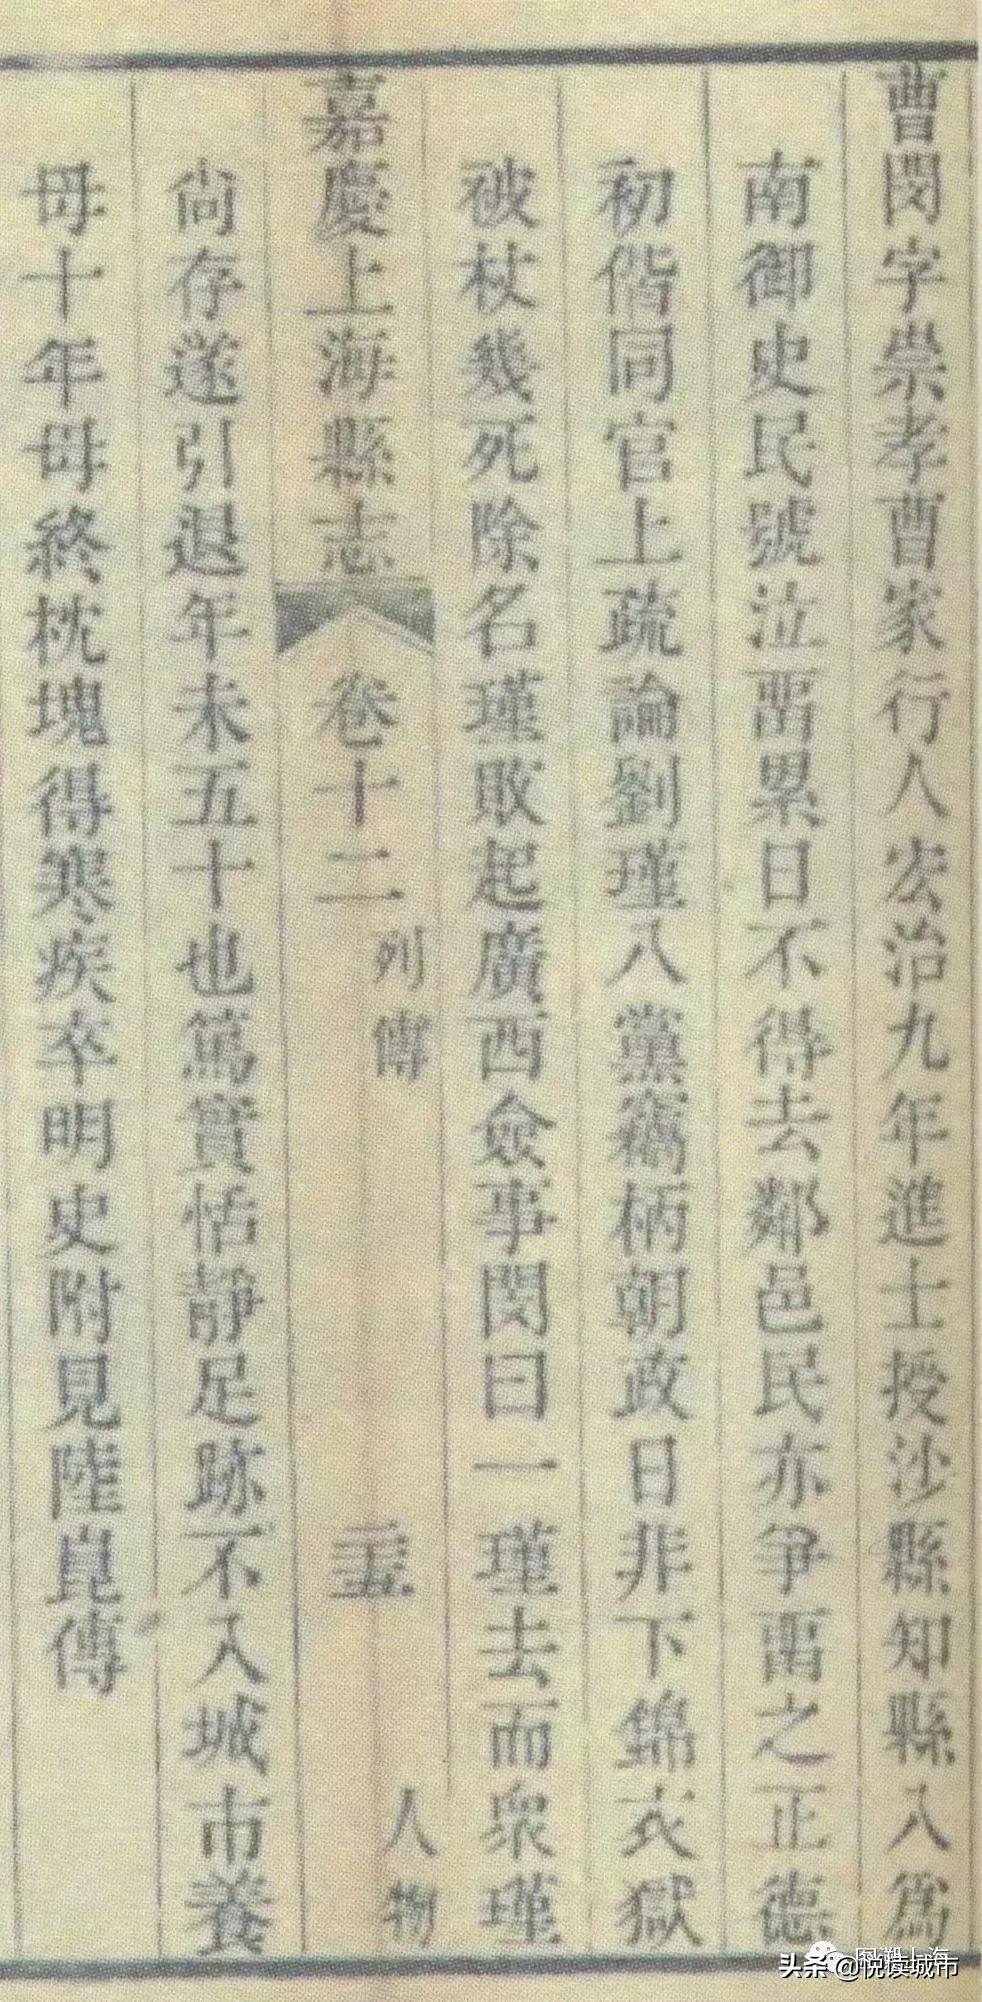 曹閔字崇孝曹家行人宏治九年進士授沙縣知縣入爲
南御史民號泣畱累日不得去鄰邑民亦爭畱之正德
初偕同官上疏論劉瑾八黨竊柄朝政日非下錦衣獄
被杖幾死除名瑾敗起廣西僉事閔曰一瑾去而衆瑾
嘉慶上海縣志 卷十二 列傳 二十五 人物
尙存遂引退年未五十也篤實恬靜足跡不入城市養
母十年母終枕塊得寒疾卒明史附見陸崑傳
头条 @悦读城市